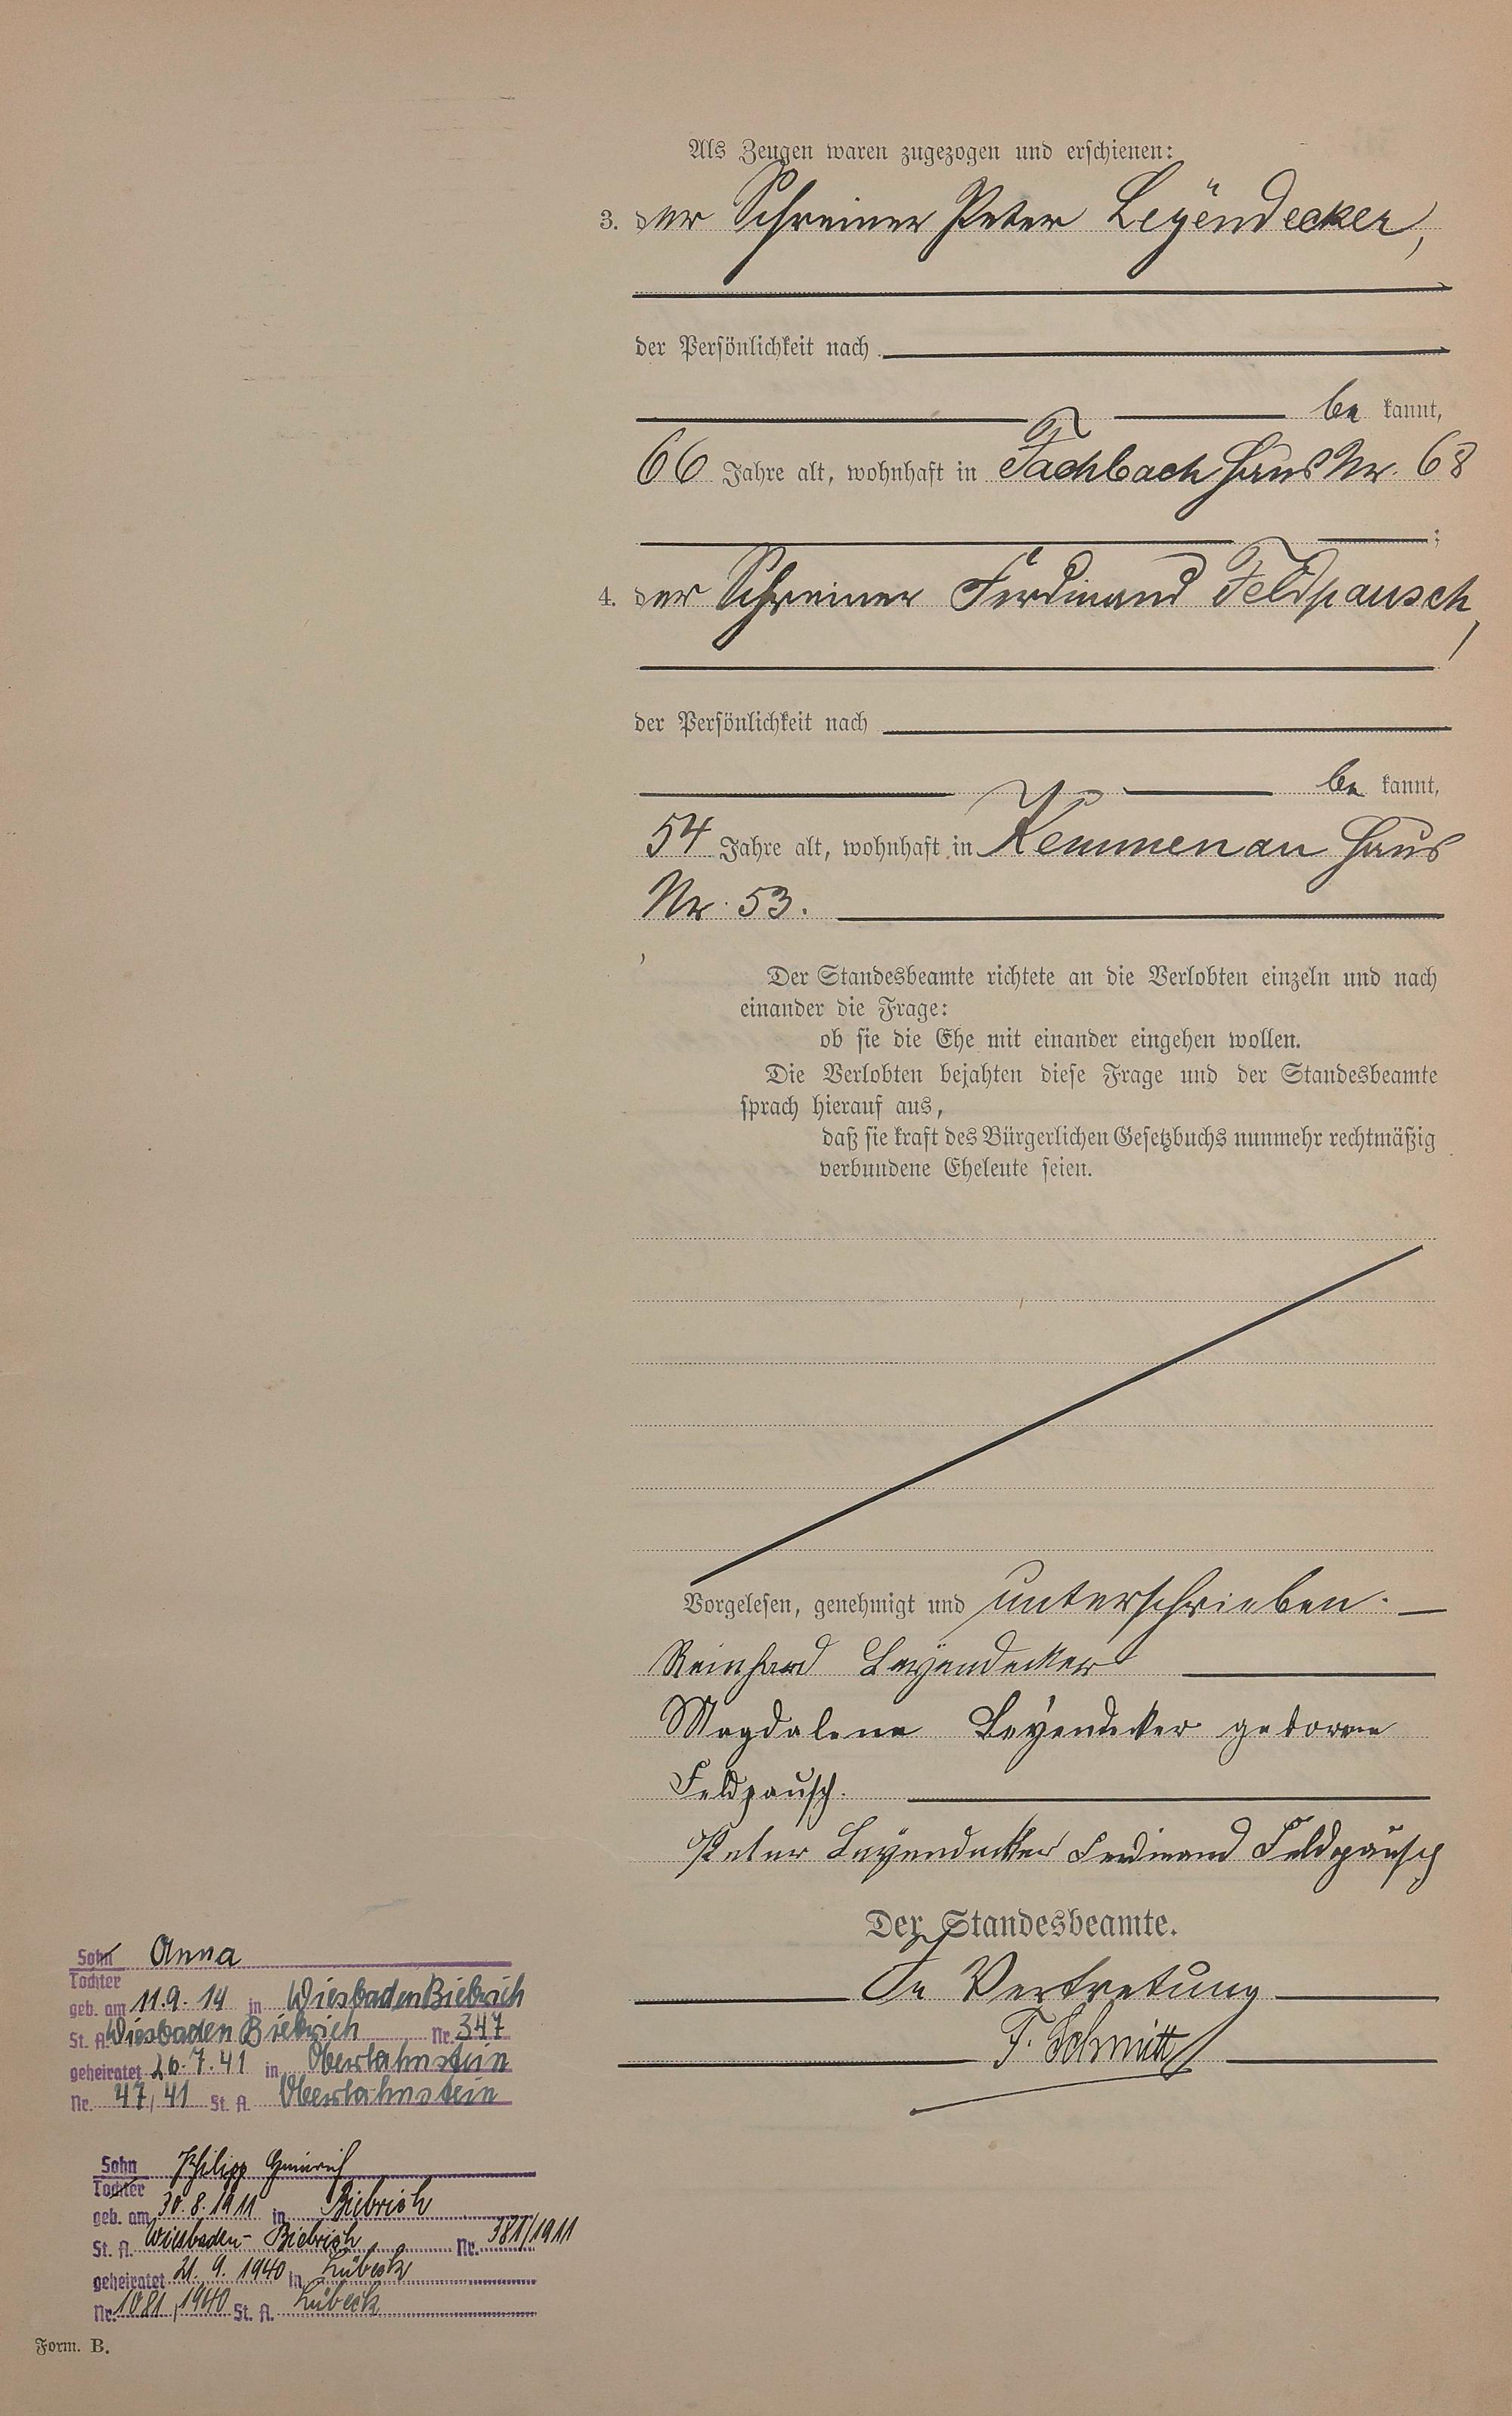 Als Zeugen waren zugezogen und erschienen:
3. der Schreiner Peter Leÿendecker,
der Persönlichkeit nach
be kannt,
66 Jahre alt, wohnhaft in Fachbach Haus Nr. 68
;
4. der Schreiner Ferdinand Feldpausch,
der Persönlichkeit nach
be kannt,
54 Jahre alt, wohnhaft in Kemmenau Haus
Nr. 53.
Der Standesbeamte richtete an die Verlobten einzeln und nach
einander die Frage:
ob sie die Ehe mit einander eingehen wollen.
Die Verlobten bejahten diese Frage und der Standesbeamte
sprach hierauf aus,
daß sie kraft des Bürgerlichen Gesetzbuchs nunmehr rechtmäßig
verbundene Eheleute seien.
Vorgelesen, genehmigt und unterschrieben.
Reinhard Leÿendecker
Magdalena Leÿendecker geborene
Feldpausch.
Peter Leÿendecker Ferdinand Feldpausch
Der Standesbeamte.
In Vertretung
F. Schmitt
Sohn Anna
Tochter
geb. am 11.9.14 in Wiesbaden Biebrich
St. A. Wiesbaden Biebrich Nr. 347
geheiratet 26.7.41 in Oberlahnstein
Nr. 47/41 St. A. Oberlahnstein
Sohn Philipp Heinrich
Tochter
geb. am 30.8.1911 in Biebrich
St. A. Wiesbaden-Biebrich Nr. 381/1911
geheiratet 21.9.1940 in Lübeck
Nr. 1081/1940 St. A. Lübeck
Form. B.